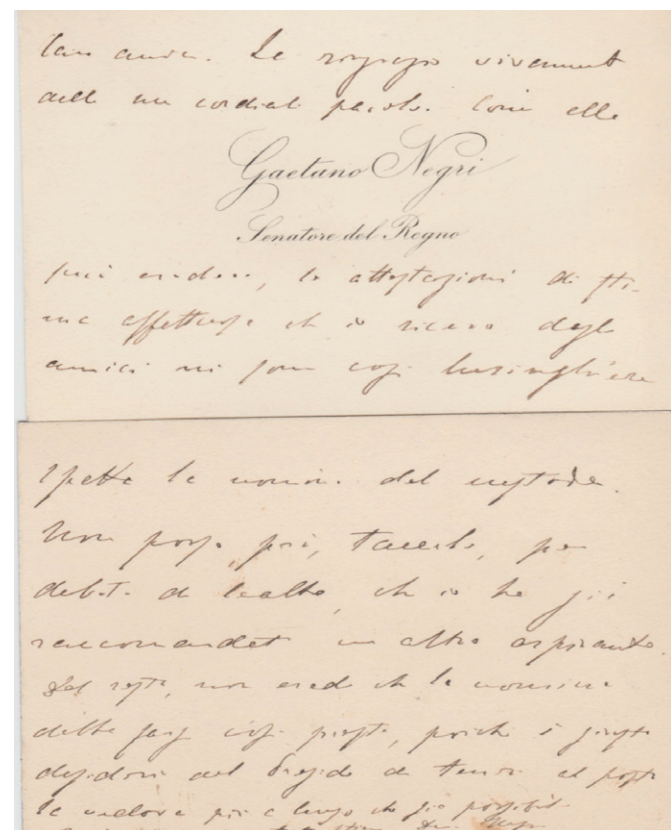 Caro amico. La ringrazio vivamente
delle sue cordiali parole. Come ella
Gaetano Negri
Senatore del Regno
può credere, le attestazioni di sti-
ma affettuose che io ricevo dagli
amici mi sono così lusinghiere
spetta la nomina del custode.
Non posso, poi, tacerle, per
debito di lealtà, che io ho già
raccomandato un altro aspirante.
Del resto, non credo che la nomina
debba farsi così presto, poiché è giusto
desiderio del Preside di tener al posto
la vedova più a lungo che sia possibile